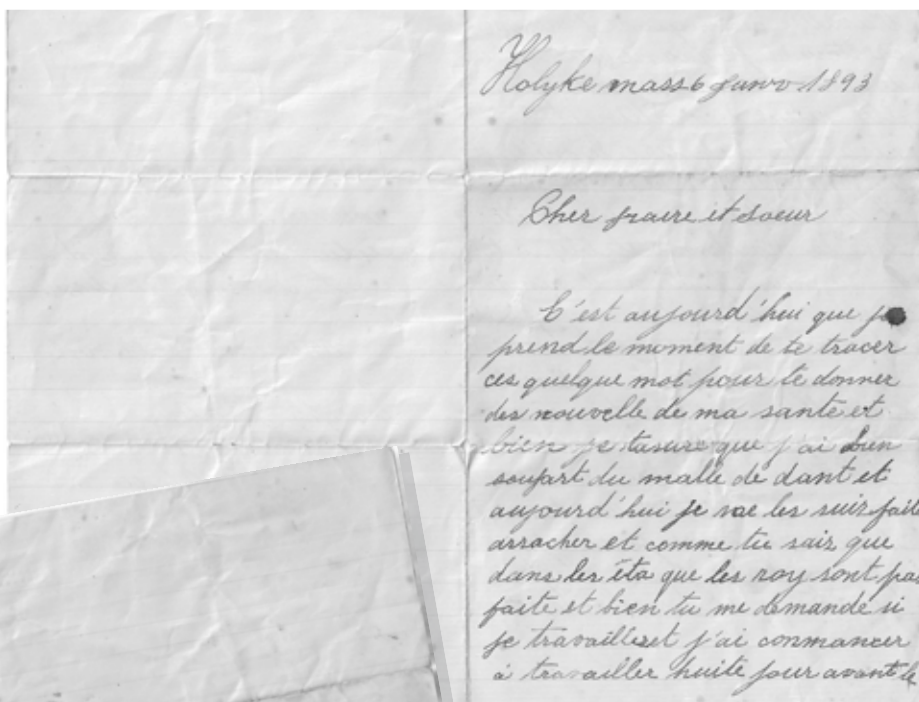 Holyke mass 6 Janvo 1893
Cher fraire et soeur
C'est aujourd'hui que je
prend le moment de te tracer
ces quelque mot pour te donner
des nouvelle de ma sante et
bien je tasure que j'ai bien
soufart du malle de dant et
aujourd'hui je me les suis fait
arracher et comme tu sais que
dans les éta que les roy sont pas
faite et bien tu me demande si
je travaillset j'ai conmancer
à travailler huite jour avant le